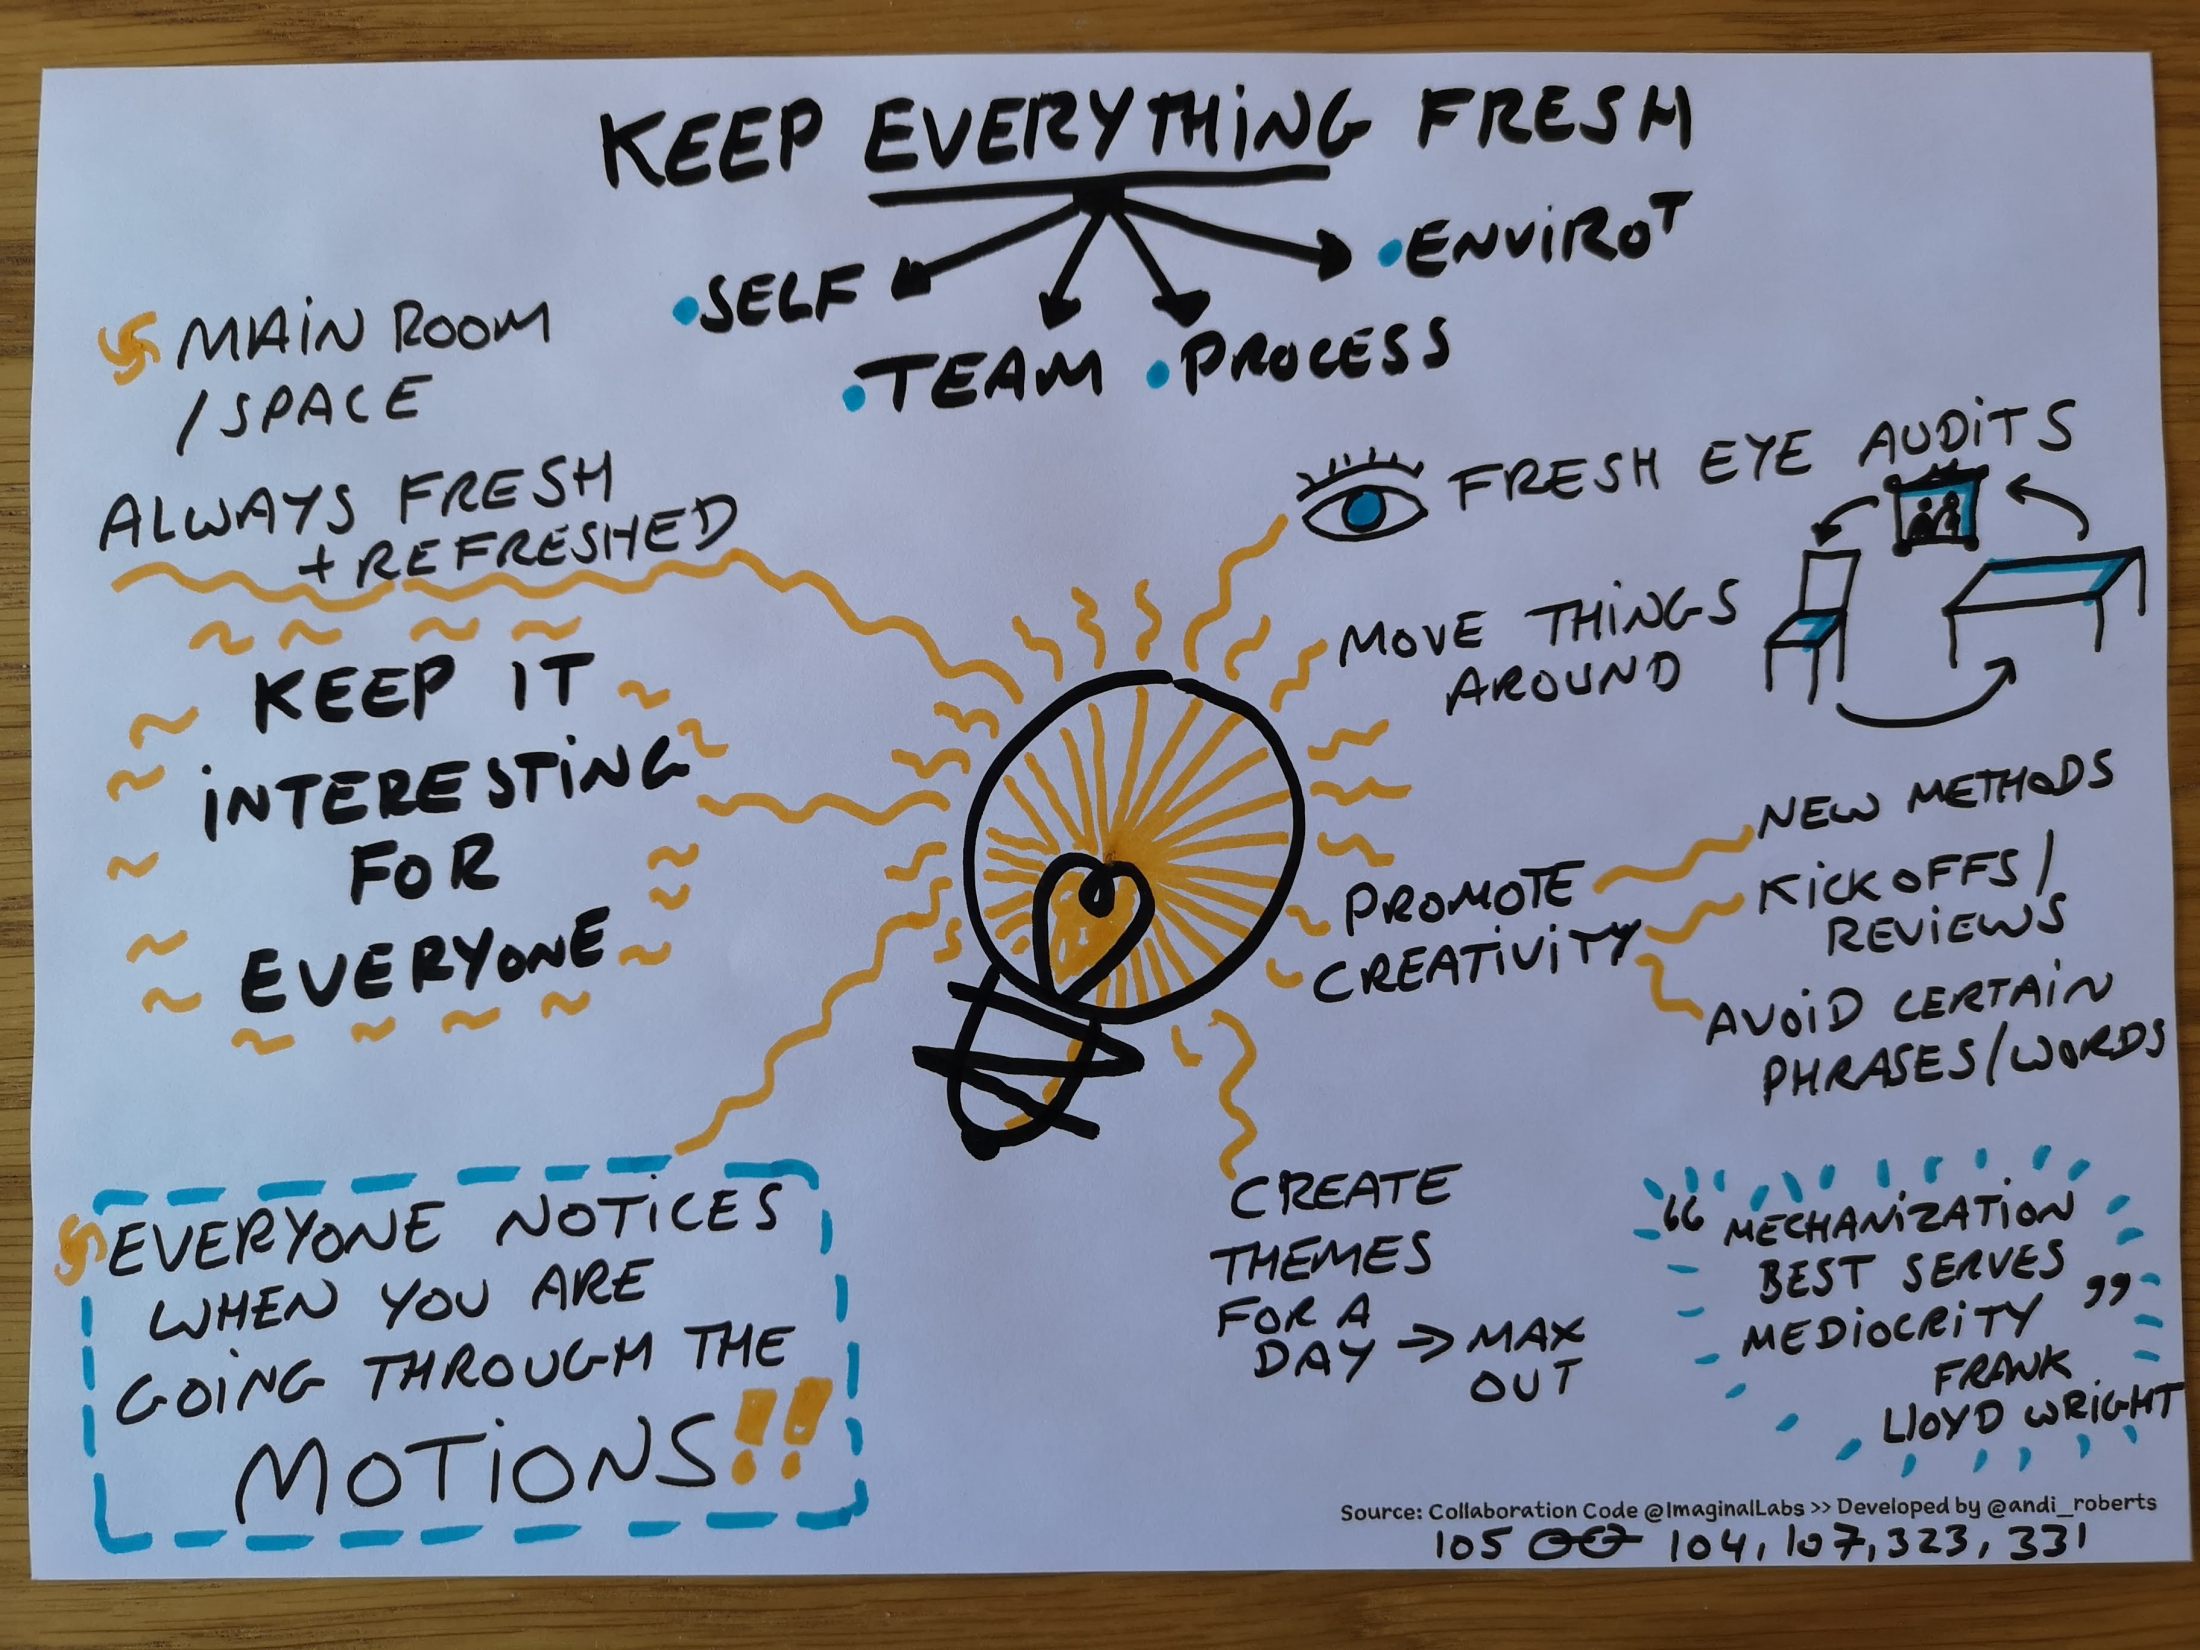 KEEP EVERYTHING FRESH
• SELF
• TEAM
• PROCESS
• ENVIROT
MAIN ROOM
/SPACE
ALWAYS FRESH
+ REFRESHED
KEEP IT
INTERESTING
FOR
EVERYONE
EVERYONE NOTICES
WHEN YOU ARE
GOING THROUGH THE
MOTIONS!!
FRESH EYE AUDITS
MOVE THINGS
AROUND
PROMOTE
CREATIVITY
NEW METHODS
KICKOFFS/
REVIEWS
AVOID CERTAIN
PHRASES/WORDS
CREATE
THEMES
FOR A
DAY → MAX
OUT
“MECHANIZATION
BEST SERVES
MEDIOCRITY”
FRANK
LLOYD WRIGHT
Source: Collaboration Code @ImaginalLabs >> Developed by @andi_roberts
105 104, 107, 323, 331